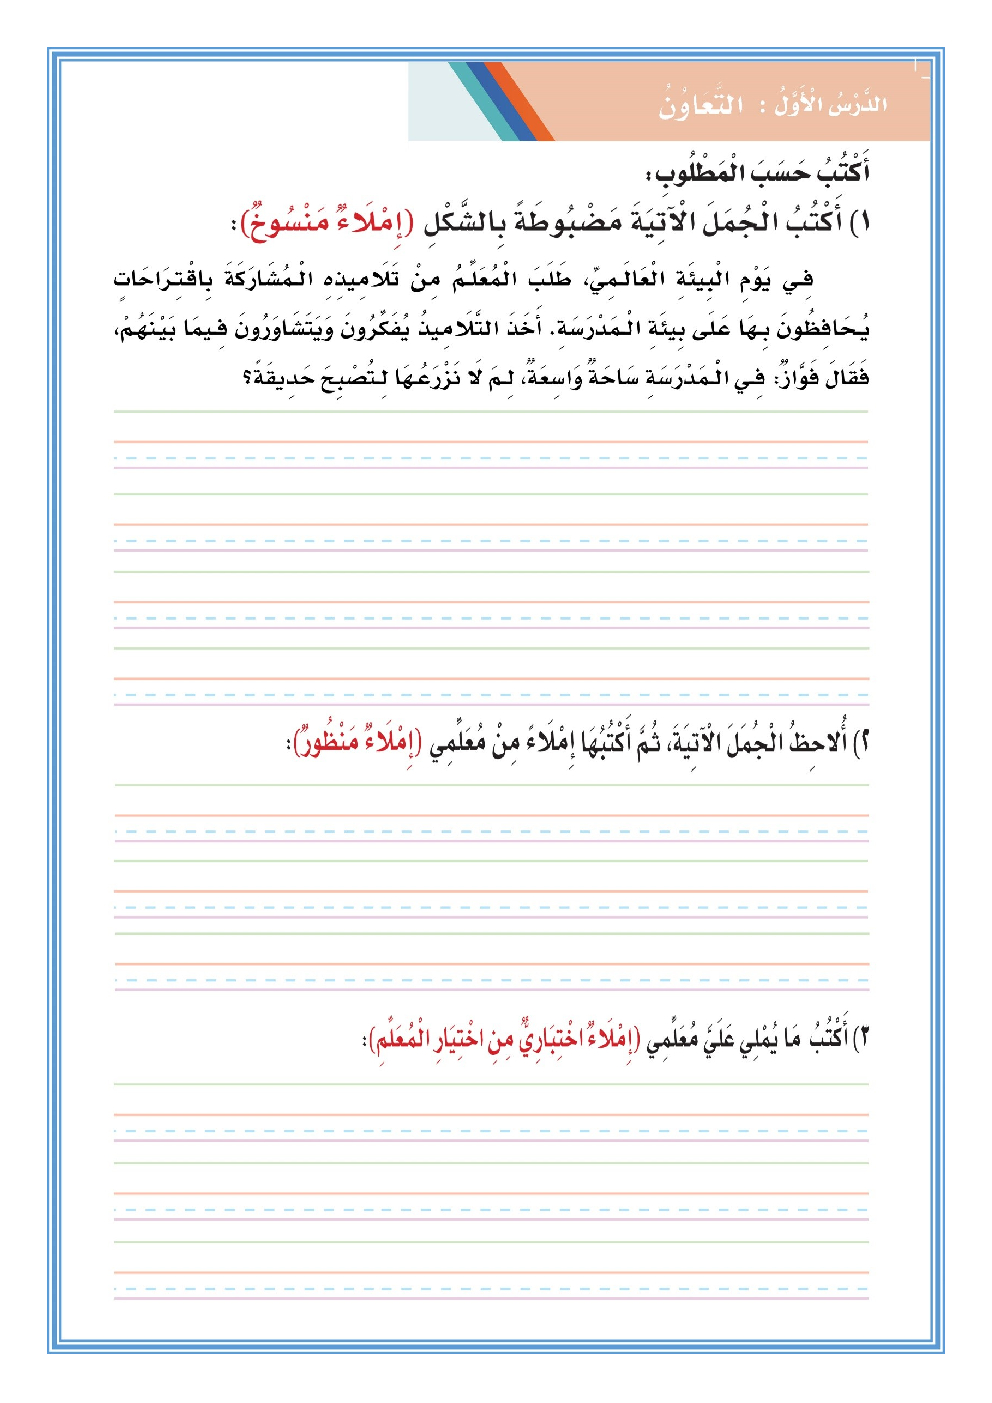 الدَّرْسُ الْأَوَّلُ : التَّعَاوُنُ
أَكْتُبُ حَسَبَ الْمَطْلُوبِ:
١) أَكْتُبُ الْجُمَلَ الْآتِيَةَ مَضْبُوطَةً بِالشَّكْلِ (إِمْلَاءٌ مَنْسُوخٌ):
فِي يَوْمِ الْبِيئَةِ الْعَالَمِيِّ، طَلَبَ الْمُعَلِّمُ مِنْ تَلَامِيذِهِ الْمُشَارَكَةَ بِاقْتِرَاحَاتٍ
يُحَافِظُونَ بِهَا عَلَى بِيئَةِ الْمَدْرَسَةِ. أَخَذَ التَّلَامِيذُ يُفَكِّرُونَ وَيَتَشَاوَرُونَ فِيمَا بَيْنَهُمْ،
فَقَالَ فَوَّازٌ: فِي الْمَدْرَسَةِ سَاحَةٌ وَاسِعَةٌ، لِمَ لَا نَزْرَعُهَا لِتُصْبِحَ حَدِيقَةً؟
٢) أُلَاحِظُ الْجُمَلَ الْآتِيَةَ، ثُمَّ أَكْتُبُهَا إِمْلَاءً مِنْ مُعَلِّمِي (إِمْلَاءٌ مَنْظُورٌ):
٢) أَكْتُبُ مَا يُمْلِي عَلَيَّ مُعَلِّمِي (إِمْلَاءٌ اخْتِبَارِيٌّ مِنِ اخْتِيَارِ الْمُعَلِّمِ):